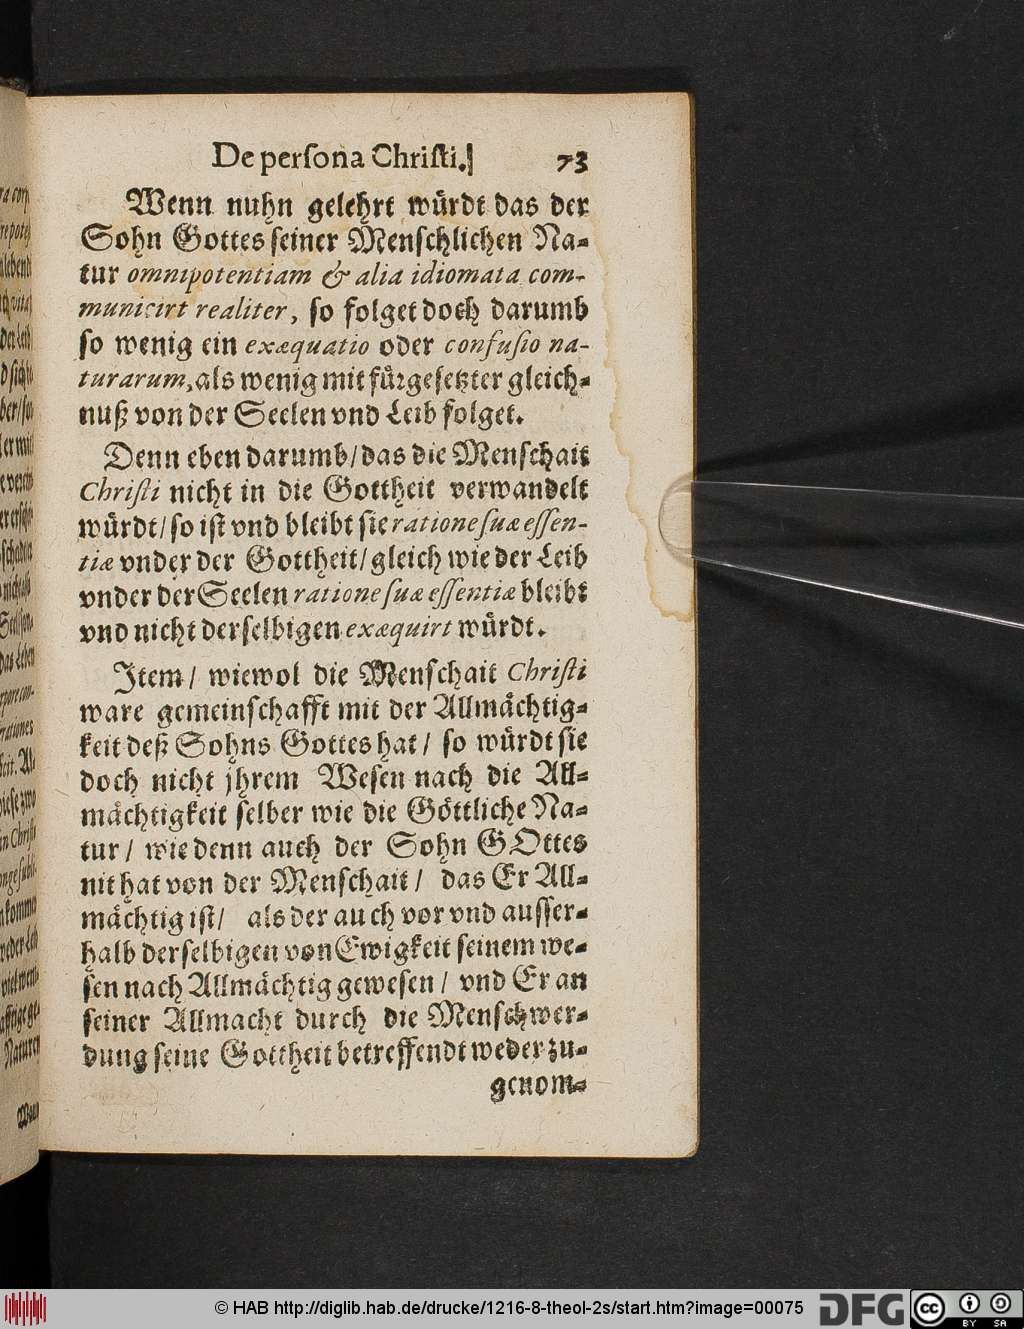 De perſona Chriſti. 73
Wenn nuhn gelehrt würdt das der
Sohn Gottes ſeiner Menſchlichen Na-
tur omnipotentiam & alia idiomata com-
municirt realiter, ſo folget doch darumb
ſo wenig ein exæquatio oder confuſio na-
turarum, als wenig mit fürgeſetzter gleich-
nuß von der Seelen vnd Leib folget.
Denn eben darumb/ das die Menſchait
Chriſti nicht in die Gottheit verwandelt
würdt/ ſo iſt vnd bleibt ſie ratione ſuæ eſſen-
tiæ vnder der Gottheit/ gleich wie der Leib
vnder der Seelen ratione ſuæ eſſentiæ bleibt
vnd nicht derſelbigen exæquirt würdt.
Item/ wiewol die Menſchait Chriſti
ware gemeinſchafft mit der Allmächtig-
keit deß Sohns Gottes hat/ ſo würdt ſie
doch nicht jhrem Weſen nach die All-
mächtigkeit ſelber wie die Göttliche Na-
tur/ wie denn auch der Sohn GOttes
nit hat von der Menſchait/ das Er All-
mächtig iſt/ als der auch vor vnd auſſer-
halb derſelbigen von Ewigkeit ſeinem we-
ſen nach Allmächtig geweſen/ vnd Er an
ſeiner Allmacht durch die Menſchwer-
dung ſeine Gottheit betreffendt weder zu-
genom-
© HAB http://diglib.hab.de/drucke/1216-8-theol-2s/start.htm?image=00075 DFG cc BY SA